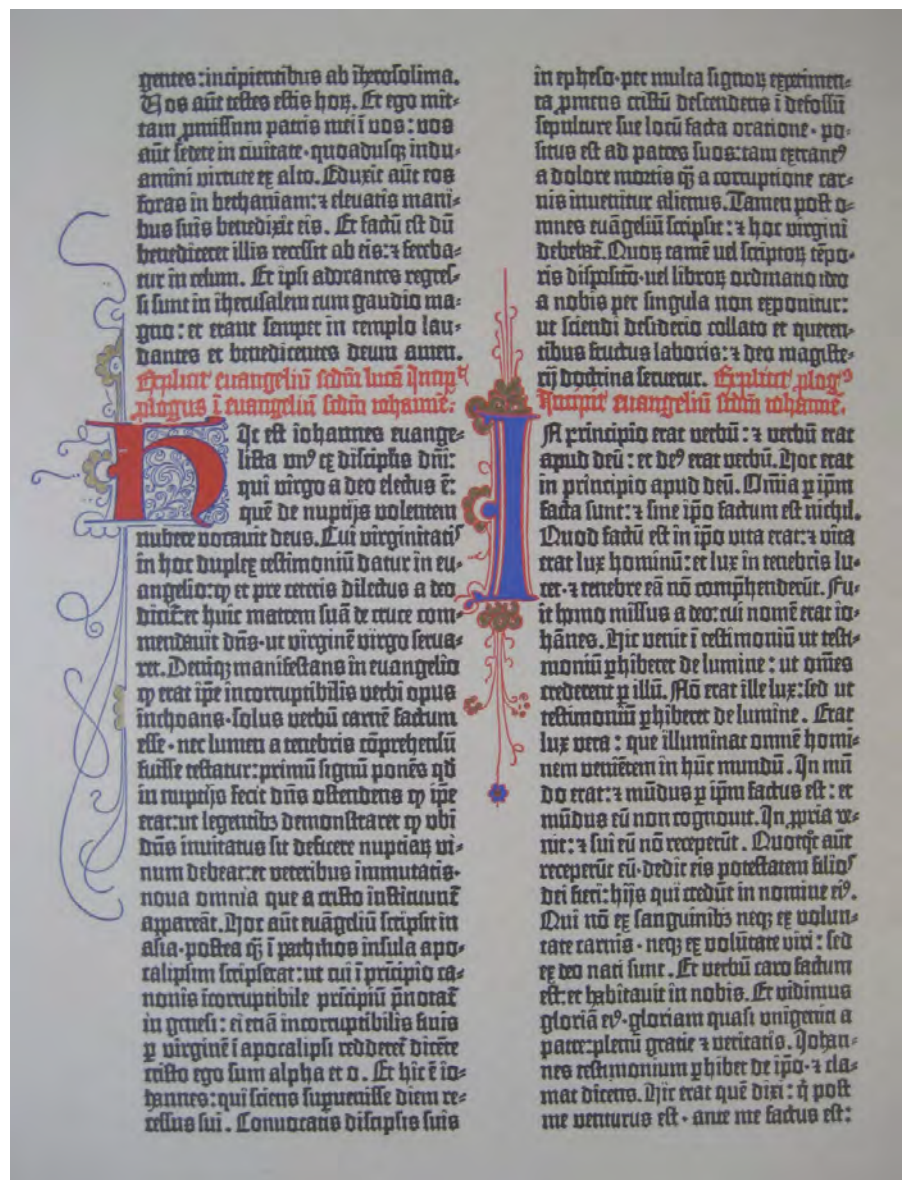 gentes:incipientibus ab iherosolima.
Uos aūt testes estis hoꝝ. Et ego mit-
tam ꝓmissum patris mei ī vos: vos
aūt sedete in civitate·quoadusqꝫ indu-
amini virtute ex alto. Eduxit aūt eos
foras in bethaniam:⁊ elevatis mani-
bus suis benedixit eis. Et factū est dū
benediceret illis recessit ab eis:⁊ fereba-
tur in celum. Et ipsi adorantes regres-
si sunt in iherusalem cum gaudio ma-
gno: et erant semper in templo lau-
dantes et benedicentes deum amen.
Explicit evangeliū scdm lucā Incipit
ꝓlogus ī evangeliū scdm iohannē.
Hic est iohannes evange-
lista unꝰ ex discipulis dnī:
qui virgo a deo electus ē:
quē de nuptijs volentem
nubere vocavit deus. Cui virginitatis
in hoc duplex testimoniū datur in eu-
angelio:ꝙ et pre ceteris dilectus a deo
dicit̄:et huic matrem suā de cruce com-
mendavit dn̄s·ut virginē virgo serva-
ret. Deniqꝫ manifestans in evangelio
ꝙ erat ip̄e incorruptibilis verbi opus
inchoans·solus verbū carnē factum
esse·nec lumen a tenebris cōprehensū
fuisse testatur:primū signū ponēs qd̄
in nuptijs fecit dn̄s ostendens ꝙ ip̄e
erat:ut legentibꝫ demonstraret ꝙ ubi
dn̄s invitatus sit deficere nuptiaꝝ vi-
num debeat:et veteribus immutatis·
nova omnia que a cristo instituunt̄
appareāt. Hoc aūt evāgeliū scripsit in
asia·postea q̄ ī pathmos insula apo-
calipsim scripserat:ut cui ī prīcipio ca-
nonis īcorruptibile prīcipiū p̄notat̄
in genesi: ei etiā incorruptibilis finis
ꝑ virginē ī apocalipsi redderet̄ dicēte
cristo ego sum alpha et o. Et hic ē io-
hannes:qui sciens supervenisse diem re-
cessus sui. Convocatis discipulis suis
in epheso·per multa signoꝝ experimen-
ta ꝓmens cristū descendens ī defossū
sepulture sue locū facta oratione·po-
situs est ad patres suos:tam extraneꝰ
a dolore mortis q̄ a corruptione car-
nis invenitur alienus. Tamen post o-
mnes evāgeliū scripsit: ⁊ hoc virgini
debebat̄. Quoꝝ tamē vel scriptoꝝ tēpo-
ris dispositō·vel libroꝝ ordinatio ideo
a nobis per singula non exponitur:
ut sciendi desiderio collato et queren-
tibus fructus laboris:⁊ deo magiste-
rij doctrina servetur. Explicit ꝓlogꝰ
Incipit evangeliū scdm iohannē.
In principio erat verbū: ⁊ verbū erat
apud deū: et deꝰ erat verbū. Hoc erat
in principio apud deū. Om̄ia ꝑ ip̄m
facta sunt: ⁊ sine ip̄o factum est nichil.
Quod factū est in ip̄o vita erat:⁊ vita
erat lux hominū: et lux in tenebris lu-
cet·⁊ tenebre eā nō comp̄henderūt. Fu-
it homo missus a deo:cui nomē erat io-
hānes. Hic venit ī testimoniū ut testi-
moniū ꝑhiberet de lumine: ut om̄es
crederent ꝑ illū. Nō erat ille lux:sed ut
testimoniū ꝑhiberet de lumine. Erat
lux vera: que illuminat omnē homi-
nem veniētem in hūc mundū. In mū
do erat:⁊ mūdus ꝑ ip̄m factus est: et
mūdus eū non cognovit. In ꝓpria ve-
nit:⁊ sui eū nō receperūt. Quotq̇t aūt
receperūt eū·dedit eis potestatem filios
dei fieri:hijs qui credūt in nomine eiꝰ.
Qui nō ex sanguinibꝫ neqꝫ ex volun-
tate carnis·neqꝫ ex volūtate viri: sed
ex deo nati sunt. Et verbū caro factum
est:et habitavit in nobis. Et vidimus
gloriā eiꝰ·gloriam quasi unigeniti a
patre:plenū gratie ⁊ veritatis. Johan-
nes testimonium ꝑhibet de ip̄o·⁊ cla-
mat dicens. Hic erat quē dixi: q̇ post
me venturus est·ante me factus est: